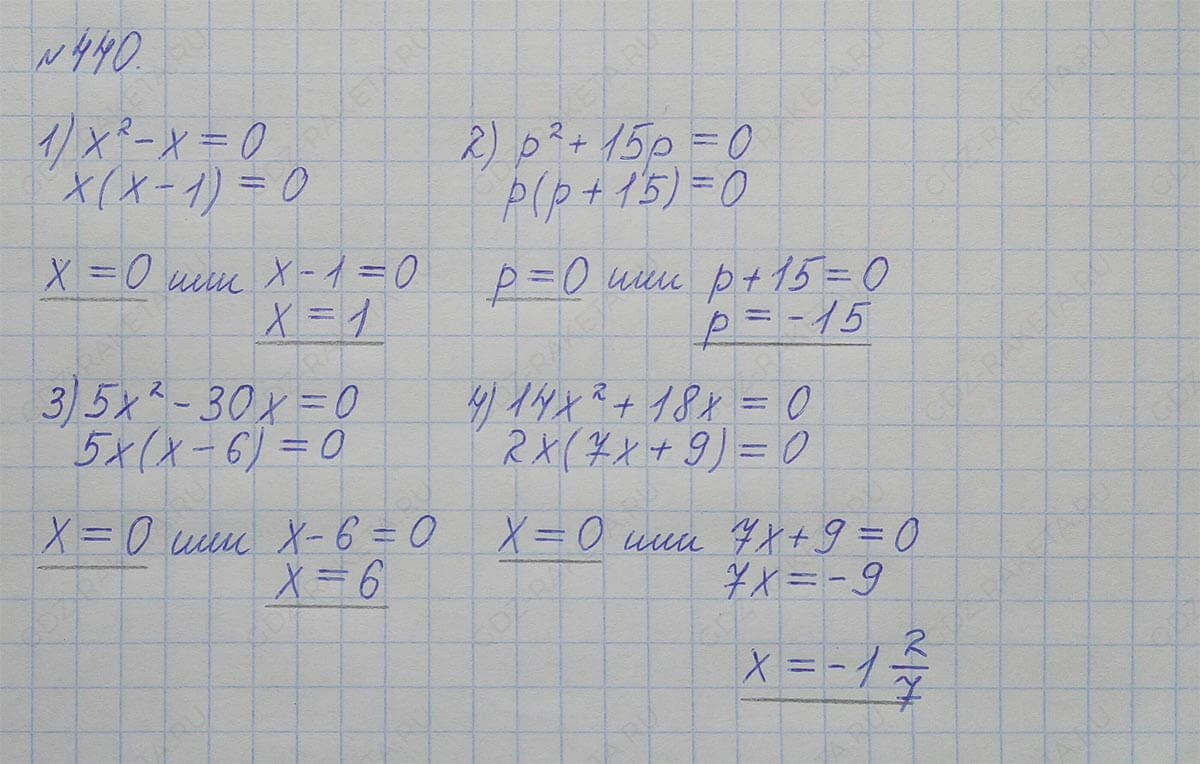 №440.
1) x² - x = 0
x(x - 1) = 0
x = 0 или x - 1 = 0
x = 1
2) p² + 15p = 0
p(p + 15) = 0
p = 0 или p + 15 = 0
p = -15
3) 5x² - 30x = 0
5x(x - 6) = 0
x = 0 или x - 6 = 0
x = 6
4) 14x² + 18x = 0
2x(7x + 9) = 0
x = 0 или 7x + 9 = 0
7x = -9
x = -1 2/7
GDZ-RAKETA.RU